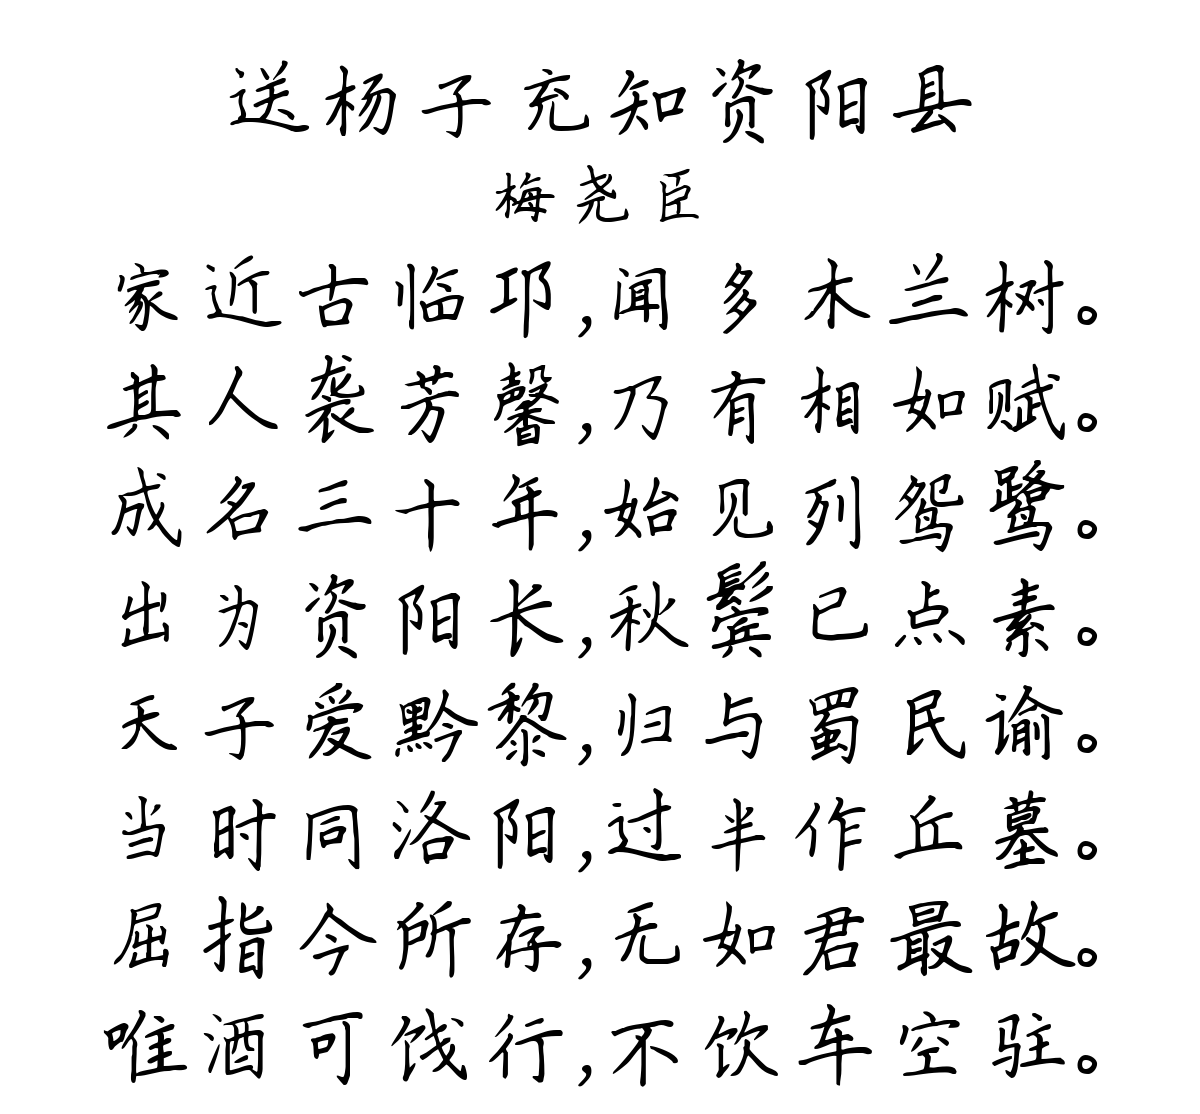 送杨子充知资阳县
梅尧臣
家近古临邛,闻多木兰树。
其人袭芳馨,乃有相如赋。
成名三十年,始见列鸳鹭。
出为资阳长,秋鬓已点素。
天子爱黔黎,归与蜀民谕。
当时同洛阳,过半作丘墓。
屈指今所存,无如君最故。
唯酒可饯行,不饮车空驻。